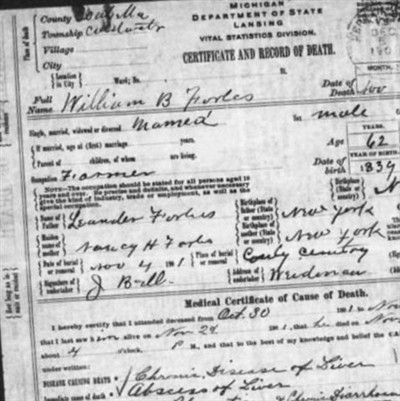 MICHIGAN
County
DEPARTMENT OF STATE
Township
LANSING
Village
VITAL STATISTICS DIVISION.
City
CERTIFICATE AND RECORD OF DEATH.
Place of death
(Location in City) Ward; No. St.
MONTH,
Full Name William B Forbes Date of Death Nov
Single, married, widowed or divorced Married Sex male
YEARS.
If married, age at (first) marriage years. Age 62
Parent of children, of whom are living. YEAR OF BIRTH.
Occupation Farmer Date of birth 1839
NOTE—The occupation should be stated for all persons aged 10 years and over. Be precise and definite, and whenever necessary give the kind of industry, trade or employment, as well as the special occupation.
Name of Father Leander Forbes Birthplace of father (State or country) New York
Maiden name of mother Nancy H Forbs Birthplace of mother (State or country) New York
Date of burial or removal Nov 4 1901 Place of burial or removal Cemetery
Signature of undertaker J Bell Address of undertaker Weidman
Medical Certificate of Cause of Death.
I hereby certify that I attended deceased from Oct. 30 1901 to Nov
that I last saw him alive on Nov 2d 1901, that he died on Nov
about 4 o'clock, P M., and that to the best of my knowledge and belief the
under written:
DISEASE CAUSING DEATH Chronic Disease of Liver
Immediate cause of death Abscess of Liver
Chronic Diarrhoea